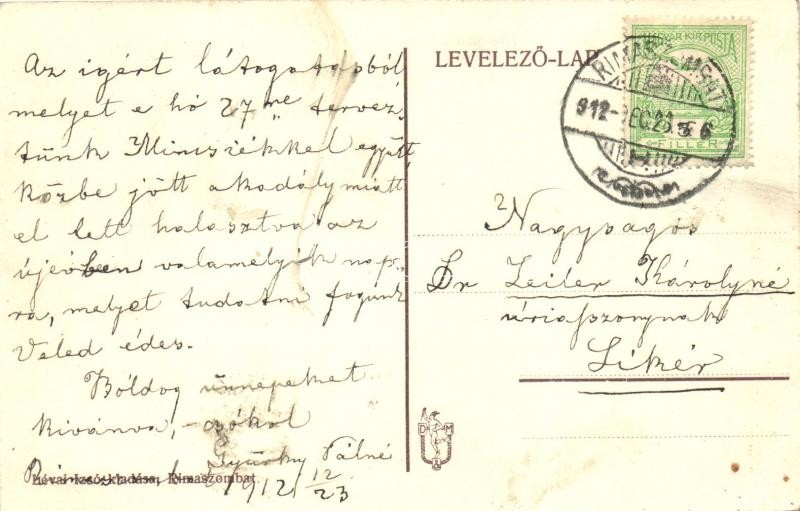 Az igért látogatásból
melyet e hó 27ne tervez-
tünk Mincsiékkel együtt,
közbe jött akadály miatt
el lett halasztva az
újévben valamelyik nap-
ra, melyet tudatni fogunk
Veled édes.
Bóldog ünnepeket
kivánva, csókol
Pálné
1912 12/23
Lévai Izsó kiadása, Rimaszombat.
LEVELEZŐ-LAP
MAGYAR KIR. POSTA
FILLER
912
DEC. 23
6
Nagyságos
Dr Zeiler Károlyné
úriasszonynak
Likér
D M